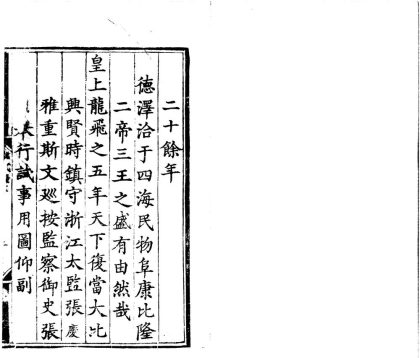 二十餘年
德澤洽于四海民物阜康比隆
二帝三王之盛有由然哉
皇上龍飛之五年天下復當大比
興賢時鎮守浙江太監張慶
雅重斯文巡按監察御史張
行試事用圖仰副